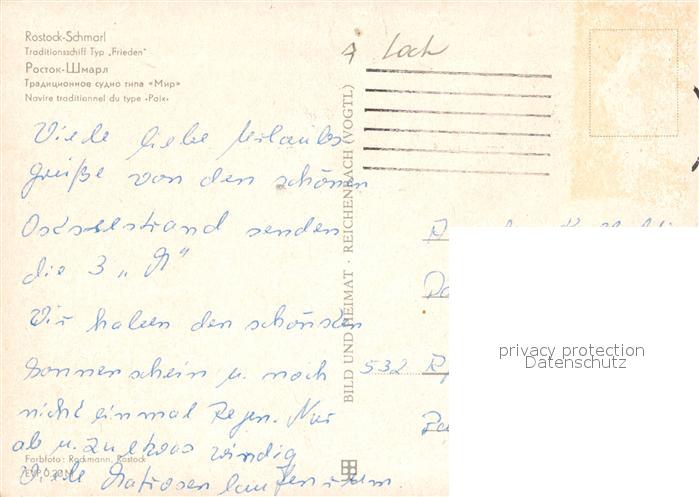 Rostock-Schmarl
Traditionsschiff Typ „Frieden"
Росток-Шмарл
Традиционное судно типа «Мир»
Navire traditionnel du type «Paix»
4 Loch
Viele liebe Urlaubs
grüße von den schönen
Ostseestrand senden
die 3 „
Wir haben den schönsten
Sonnenschein u. noch
nicht einmal Regen. Nur
ab u. zu etwas windig
Viele Matrosen laufen rum.
Farbfoto: Rackmann, Rostock
EVP 0,20 M
BILD UND HEIMAT · REICHENBACH (VOGTL)
532
privacy protection
Datenschutz